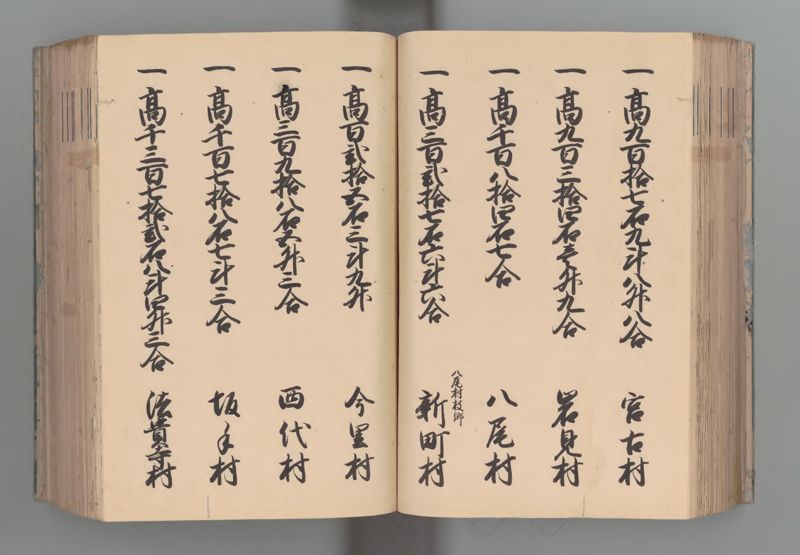 一 高九百拾七石九斗八升八合 宮古村
一 高九百三拾四石壱升九合 岩見村
一 高千百八拾四石七合 八尾村
一 高三百弐拾七石六斗六合 八尾村枝郷 新町村
一 高百弐拾五石三斗九升 今里村
一 高三百九拾八石五升三合 西代村
一 高千百七拾八石七斗三合 坂手村
一 高千三百七拾弐石八斗四升三合 法貴寺村